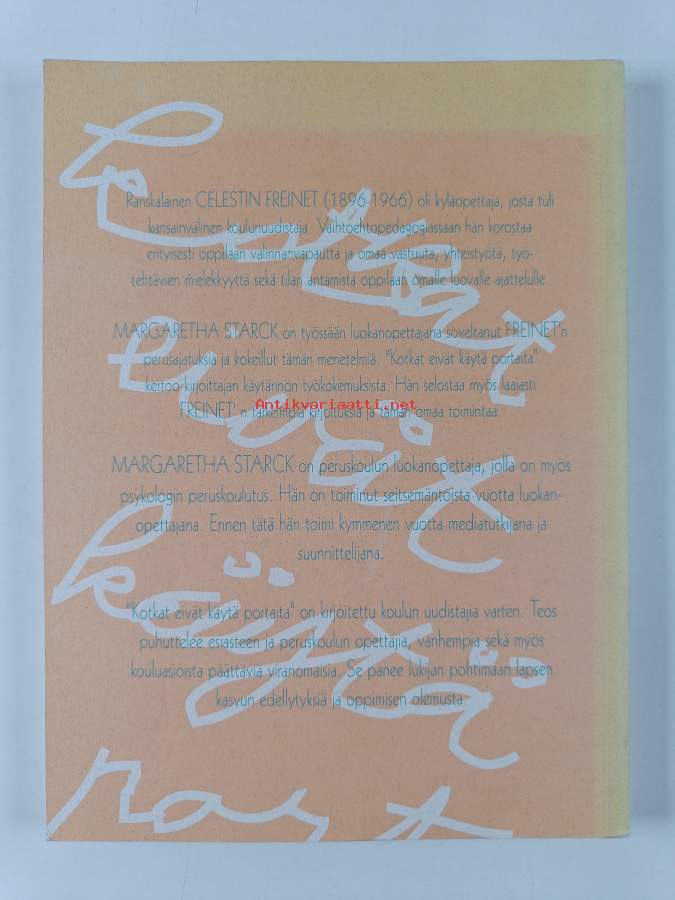 Ranskalainen CELESTIN FREINET (1896-1966) oli kyläopettaja, josta tuli
kansainvälinen koulunuudistaja. Vaihtoehtopedagogiassaan hän korostaa
erityisesti oppilaan valinnanvapautta ja omaa vastuuta, yhteistyötä, työ-
tehtävien mielekkyyttä sekä tilan antamista oppilaan omalle luovalle ajattelulle.
MARGARETHA STARCK on työssään luokanopettajana soveltanut FREINET'n
perusajatuksia ja kokeillut tämän menetelmiä. "Kotkat eivät käytä portaita"
kertoo kirjoittajan käytännön työkokemuksista. Hän selostaa myös laajasti
Antikvariaatti.net
FREINET' n tärkeimpiä kirjoituksia ja tämän omaa toimintaa.
MARGARETHA STARCK on peruskoulun luokanopettaja, jolla on myös
psykologin peruskoulutus. Hän on toiminut seitsemäntoista vuotta luokan-
opettajana. Ennen tätä hän toimi kymmenen vuotta mediatutkijana ja
suunnittelijana.
"Kotkat eivät käytä portaita" on kirjoitettu koulun uudistajia varten. Teos
puhuttelee esiasteen ja peruskoulun opettajia, vanhempia sekä myös
kouluasioista päättäviä viranomaisia. Se panee lukijan pohtimaan lapsen
kasvun edellytyksiä ja oppimisen olemusta.
kotkat
eivät
käytä
port